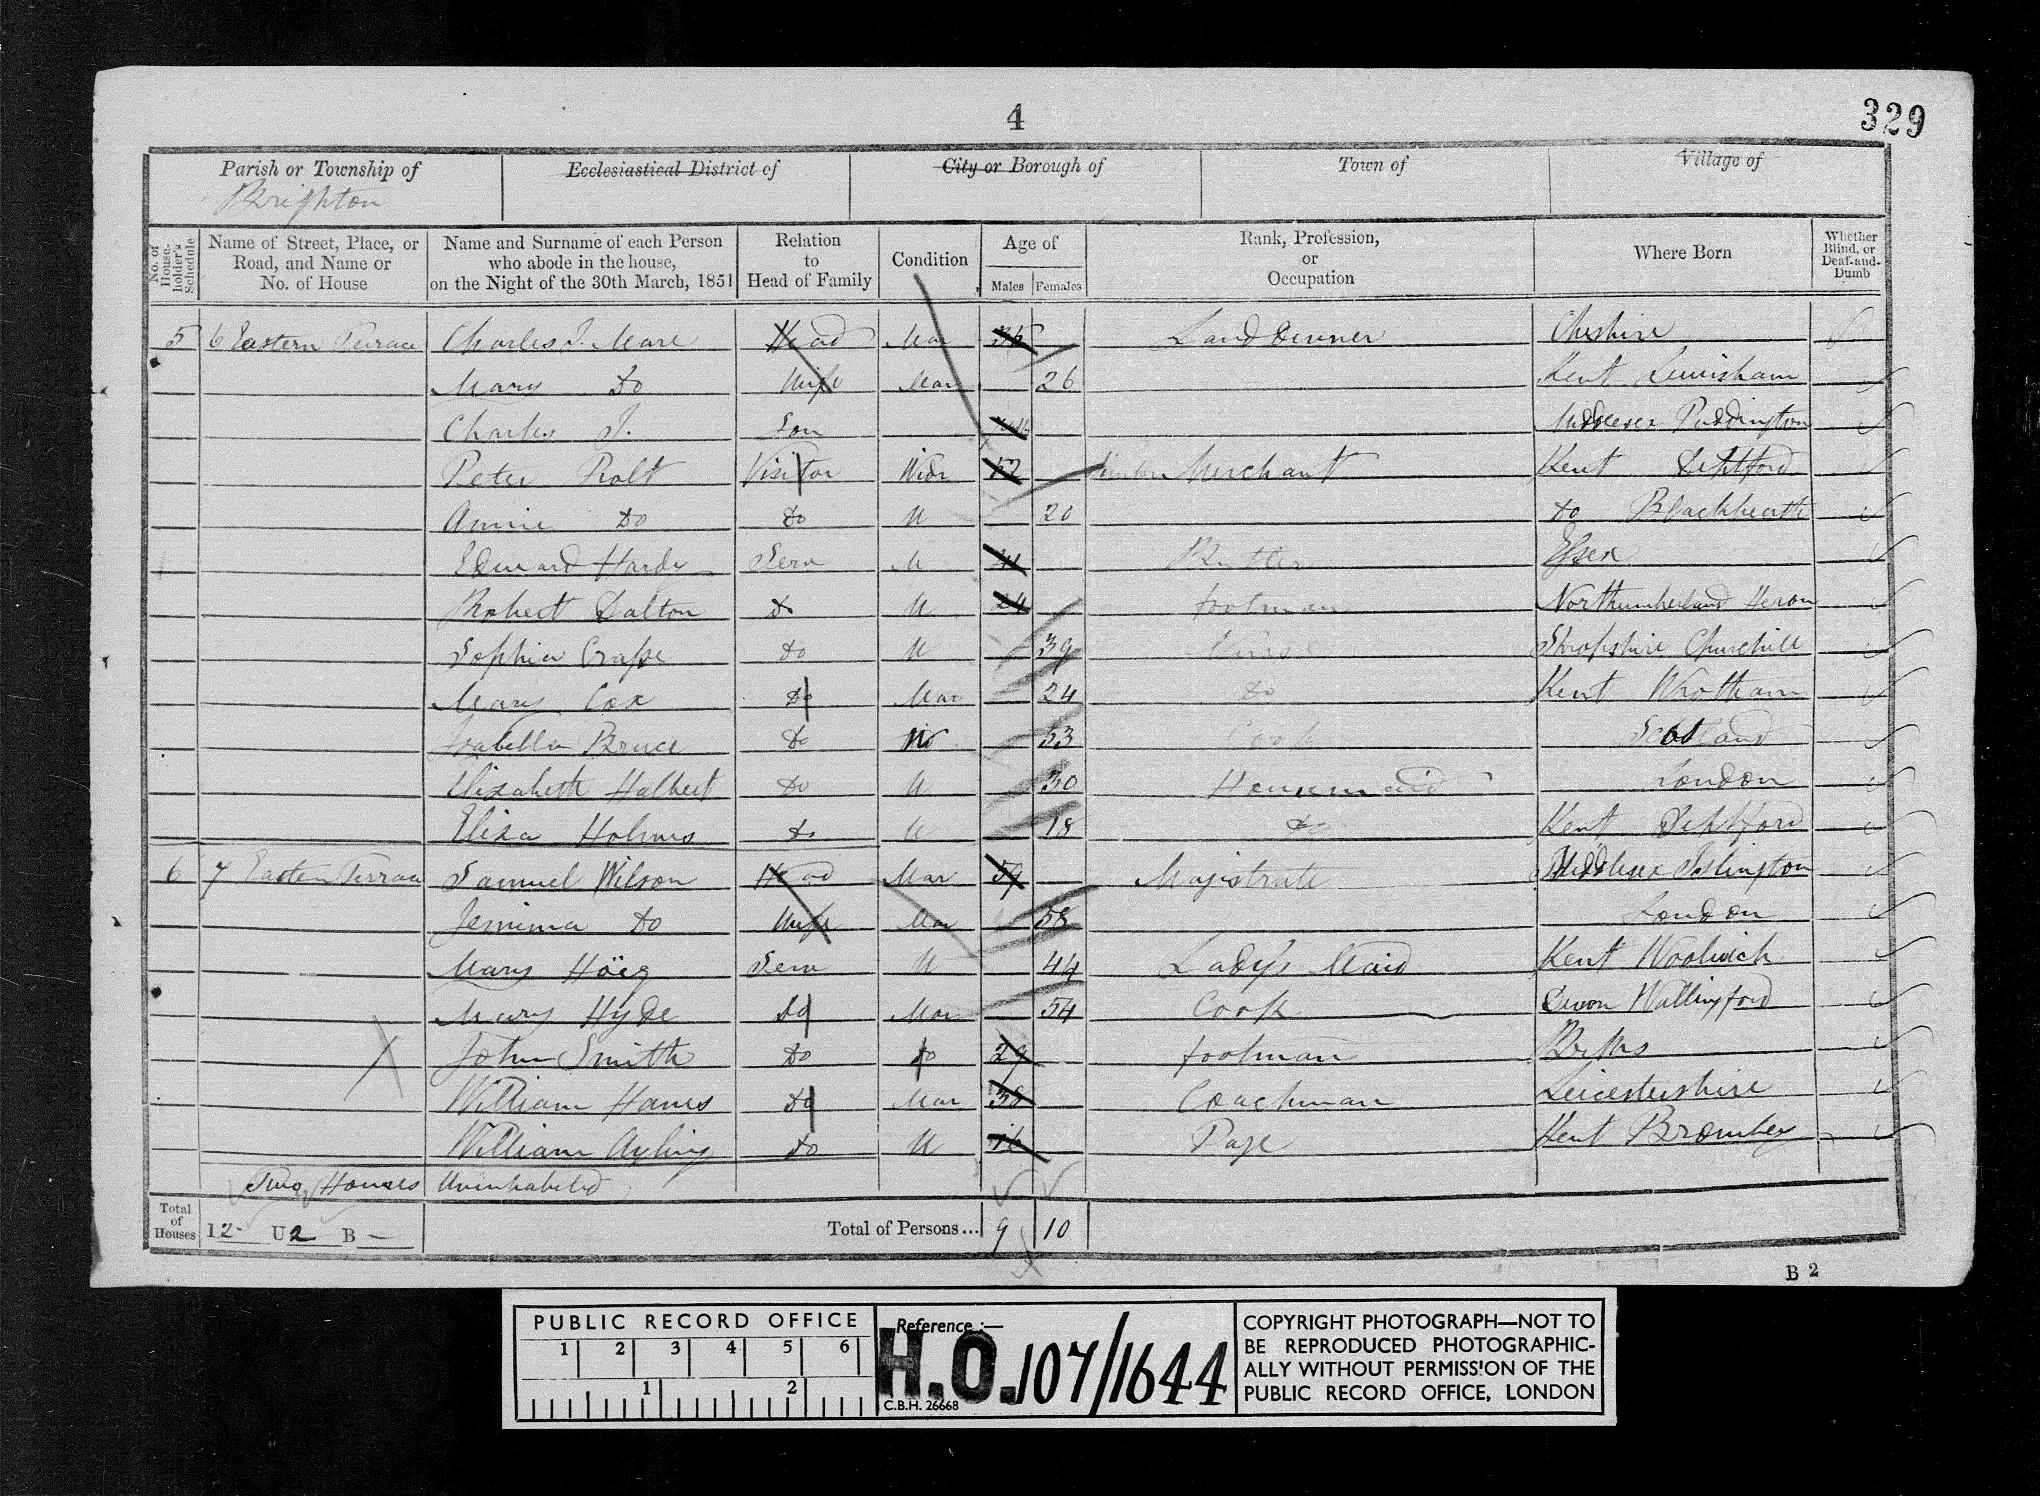 4
329
Parish or Township of
Brighton
Ecclesiastical District of
City or Borough of
Town of
Village of
No. of House-holder's Schedule
Name of Street, Place, or Road, and Name or No. of House
Name and Surname of each Person who abode in the house, on the Night of the 30th March, 1851
Relation to Head of Family
Condition
Age of
Males Females
Rank, Profession, or Occupation
Where Born
Whether Blind, or Deaf-and-Dumb
5 6 Eastern Terrace Charles J. Mare Head Mar 36 Land Owner Cheshire
Mary Do Wife Mar 26 Kent Lewisham
Charles J. Son Middlesex Paddington
Peter Rolt Visitor Widr 52 Timber Merchant Kent Deptford
Annie Do Do U 20 Do Blackheath
Edward Hardy Serv U 41 Butler Essex
Robert Dalton Do U 24 footman Northumberland
Sophia Do U 39 Nurse Shropshire Churchill
Mary Cox Do Mar 24 Do Kent Wrotham
Isabella Bruce Do W 53 Cook Scotland
Elizabeth Halbert Do U 30 Housemaid London
Eliza Holmes Do U 18 Do Kent Deptford
6 7 Eastern Terrace Samuel Wilson Head Mar 59 Magistrate Middlesex Islington
Jemima Do Wife Mar 58 London
Mary Serv U 44 Lady's Maid Kent Woolwich
Mary Hyde Do Mar 54 Cook Devon Wallingford
John Smith Do Do 29 footman Berks
William Hanes Do Mar 38 Coachman Leicestershire
William Ayling Do U 16 Page Kent Bromley
Two Houses Uninhabited
Total of Houses 12- U 2 B -
Total of Persons... 9 10
B 2
PUBLIC RECORD OFFICE
1 2 3 4 5 6
1 2
Reference :—
H.O. 107/1644
C.B.H. 26668
COPYRIGHT PHOTOGRAPH—NOT TO
BE REPRODUCED PHOTOGRAPHIC-
ALLY WITHOUT PERMISSION OF THE
PUBLIC RECORD OFFICE, LONDON